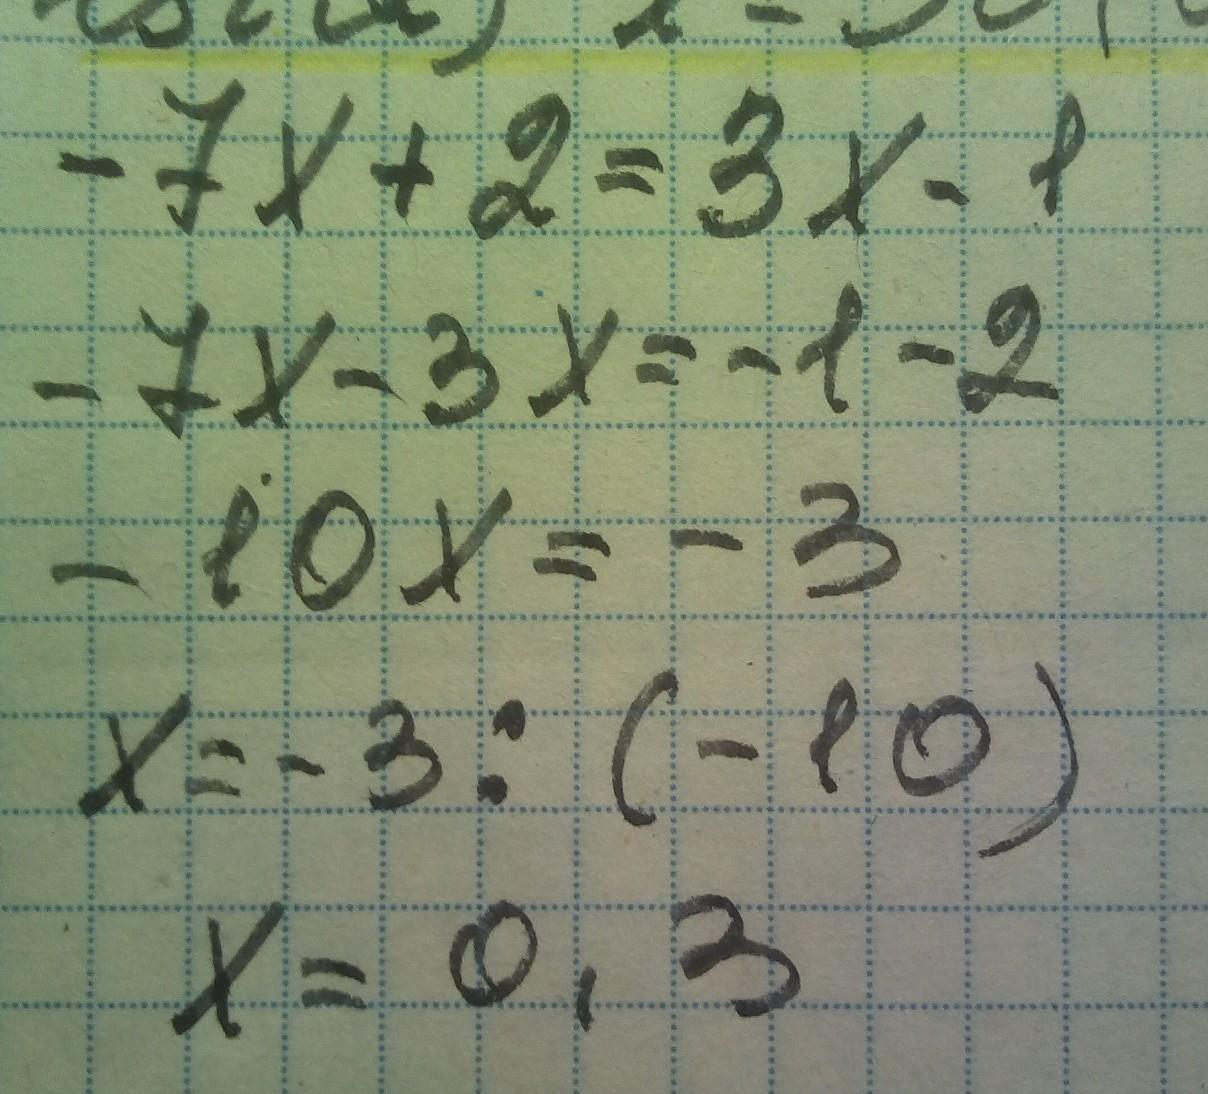 -7x+2=3x-1
-7x-3x=-1-2
-10x=-3
x=-3:(-10)
x=0,3